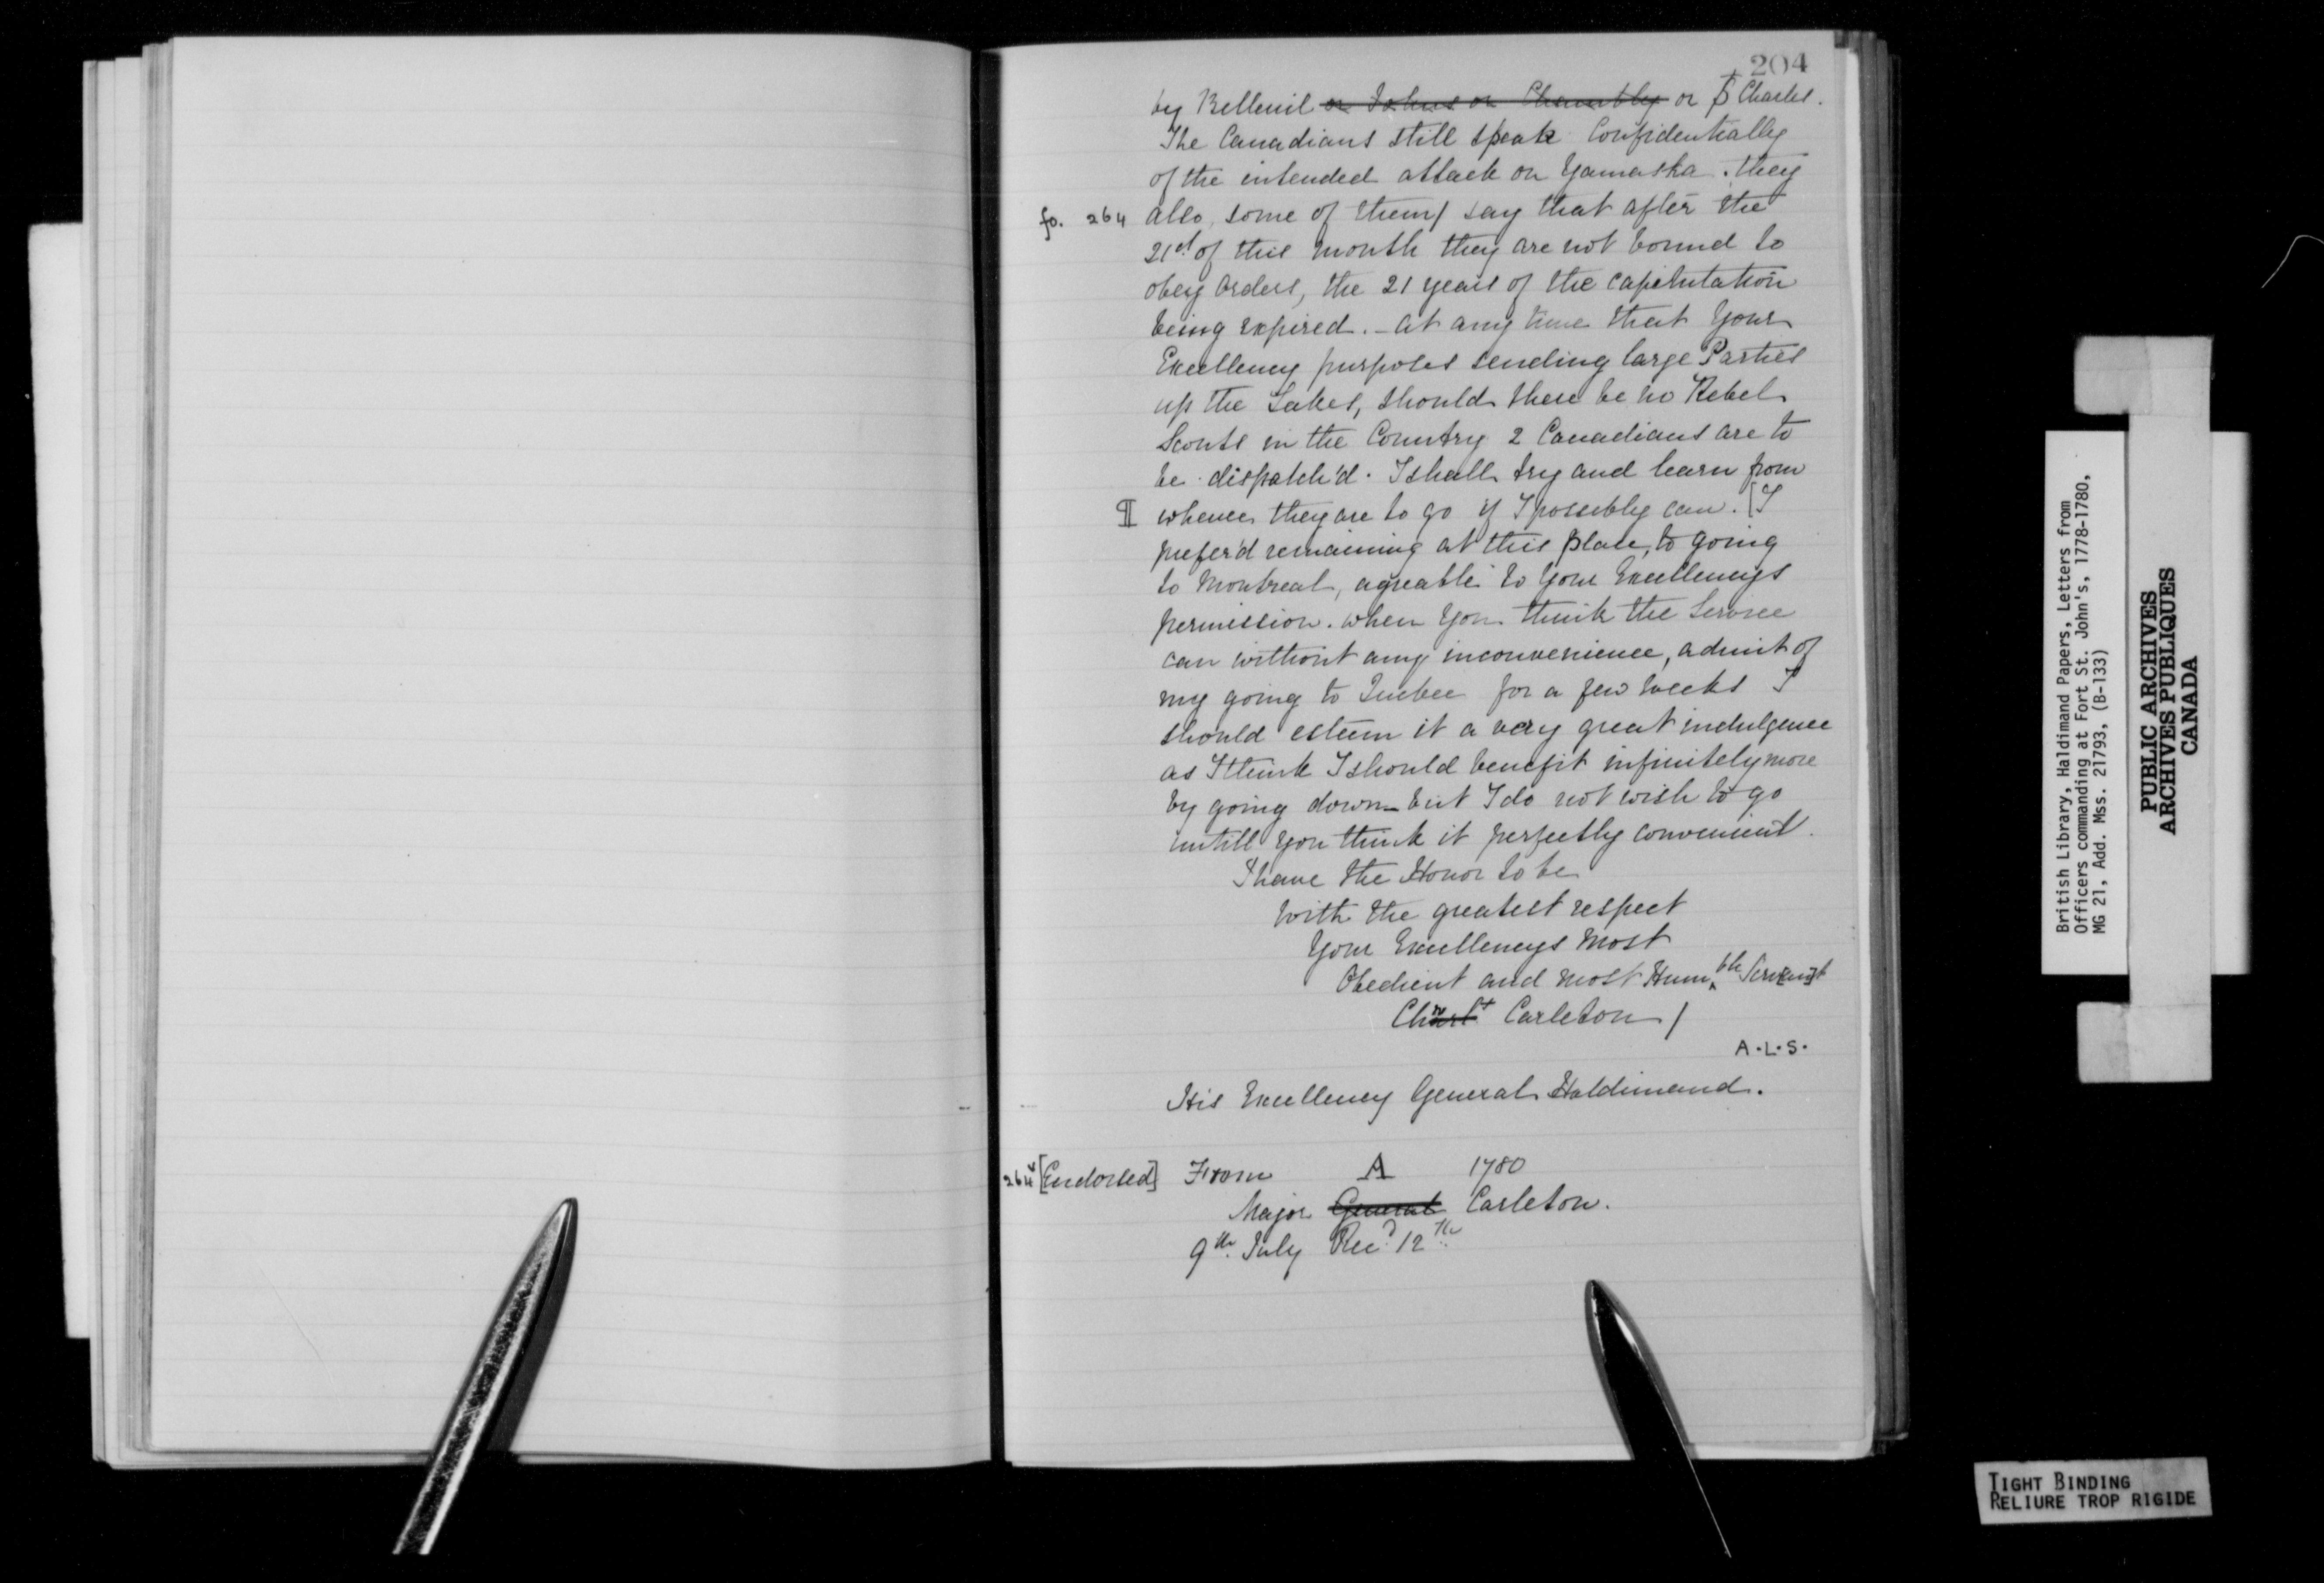 204
by Belleuil or Johns or Chambly or St Charles.
The Canadians still speak Confidentially
of the intended attack on Yamaska. they
fo. 264 also, some of them/ say that after the
21st of this month they are not bound to
obey orders, the 21 years of the capitulation
being expired. - at any time that Your
Excellency purposes sending large Parties
up the Lakes, should there be no Rebel
Scouts in the Country 2 Canadians are to
be dispatch'd. I shall try and learn from
¶ whence they are to go if I possibly can. [I
prefer'd remaining at this place, to going
to Montreal, agreable to Your Excellencys
permission. when You think the Service
can without any inconvenience, admit of
my going to Quebec for a few Weeks I
should esteem it a very great indulgence
as I think I should benefit infinitely more
by going down - but I do not wish to go
untill you think it perfectly convenient.
I have the Honor to be
With the greatest respect
Your Excellencys Most
Obedient and most Humble Serv[an]t
Chrt Carleton /
A.L.S.
His Excellency General Haldimand.
264v [Endorsed] From A 1780
Major General Carleton.
9th July Recd 12th
British Library, Haldimand Papers, Letters from
Officers commanding at Fort St. John's, 1778-1780,
MG 21, Add. Mss. 21793, (B-133)
PUBLIC ARCHIVES
ARCHIVES PUBLIQUES
CANADA
TIGHT BINDING
RELIURE TROP RIGIDE